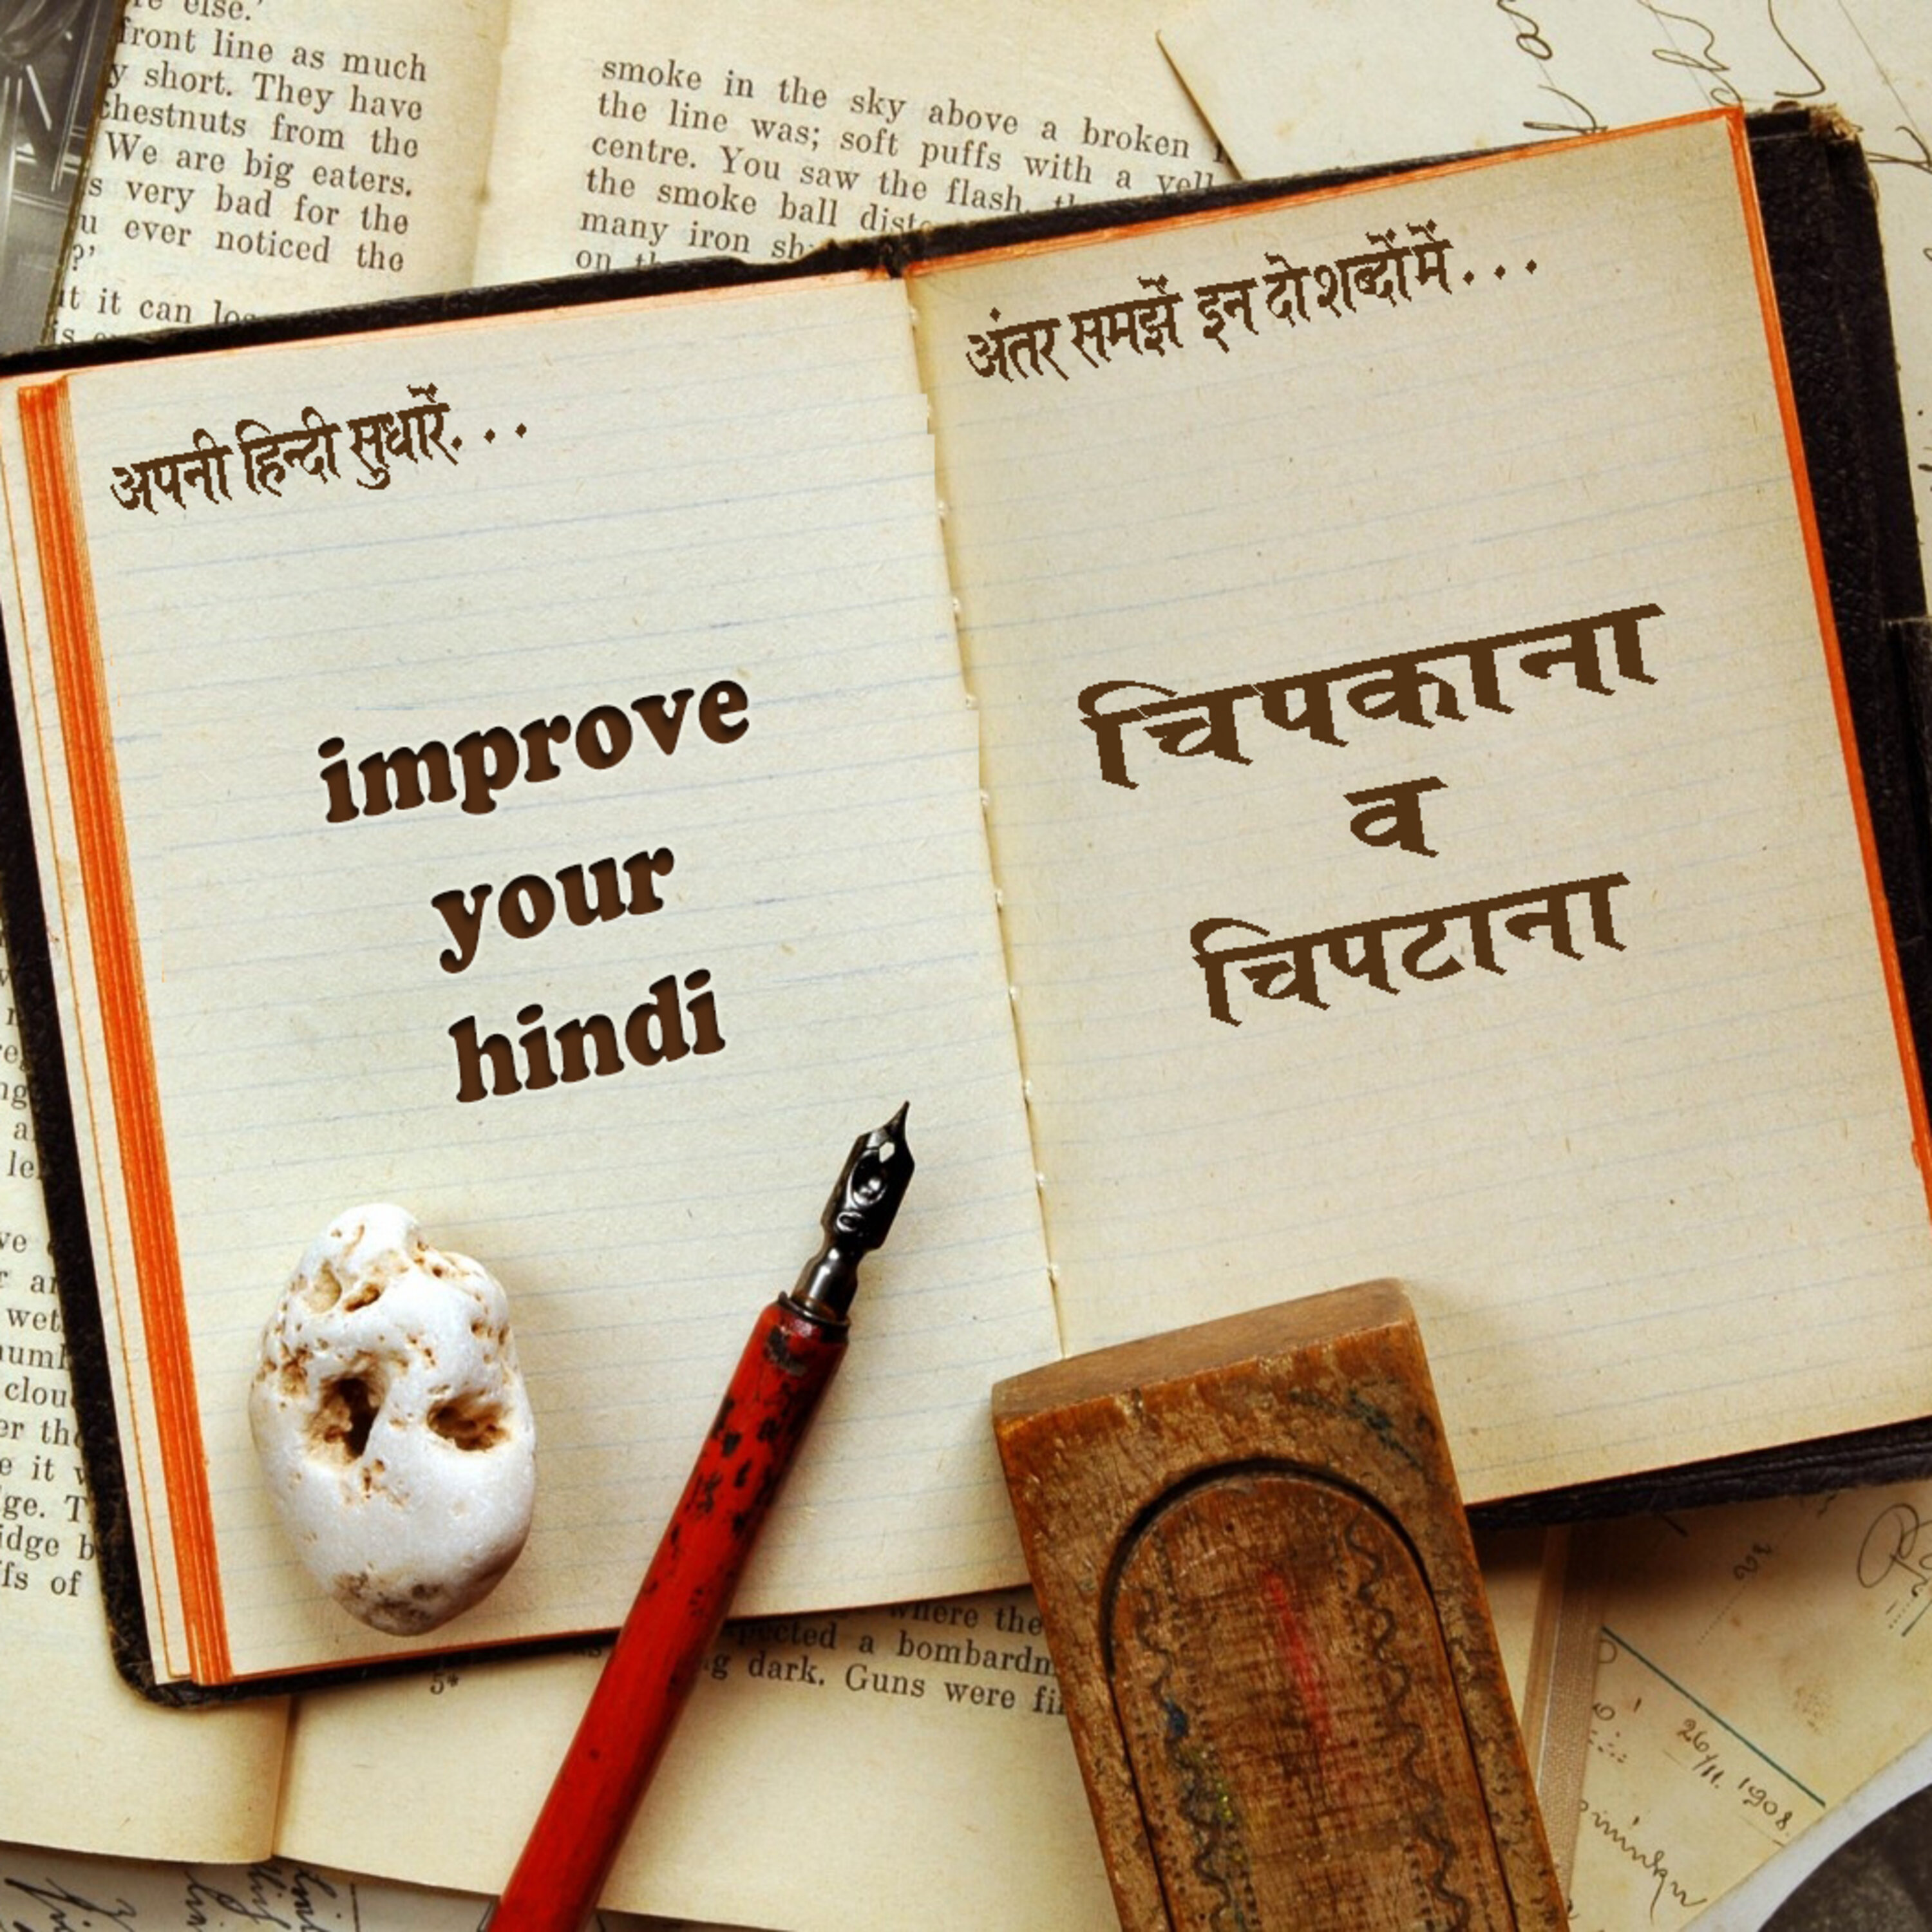 re else.'
front line as much
y short. They have
chestnuts from the
We are big eaters.
s very bad for the
u ever noticed the
?'
it it can
smoke in the sky above a broken
the line was; soft puffs with a
centre. You saw the flash,
the smoke ball
many iron
on
अपनी हिन्दी सुधारें...
improve
your
hindi
अंतर समझें इन दो शब्दों में...
चिपकाना
व
चिपटाना
where the
a
dark. Guns were
5*
wet
er
it
of
26/11. 1908.